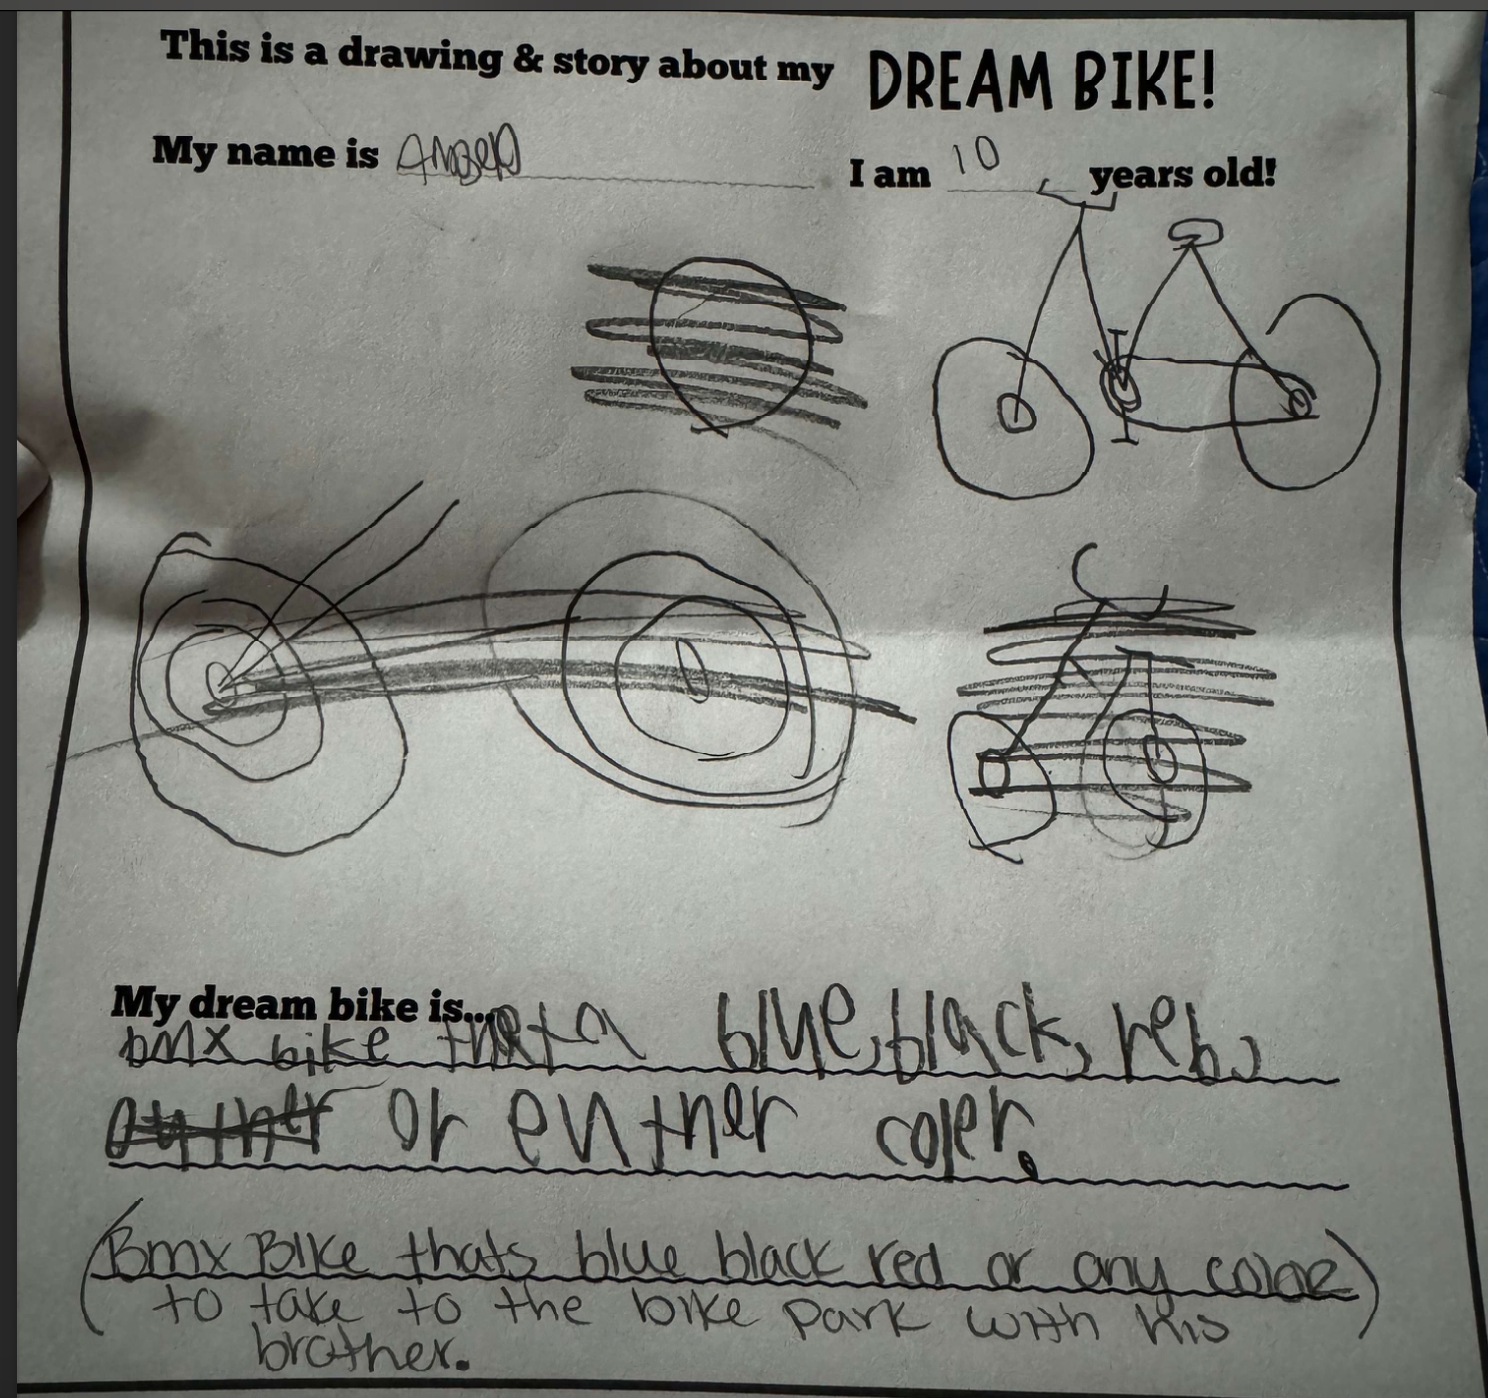 This is a drawing & story about my DREAM BIKE!
My name is I am 10 years old!
My dream bike is...
bmx bike that a blue, black, reb,
or enther coler.
(Bmx BIke thats blue black red or any color)
to take to the bike park with his
brother.